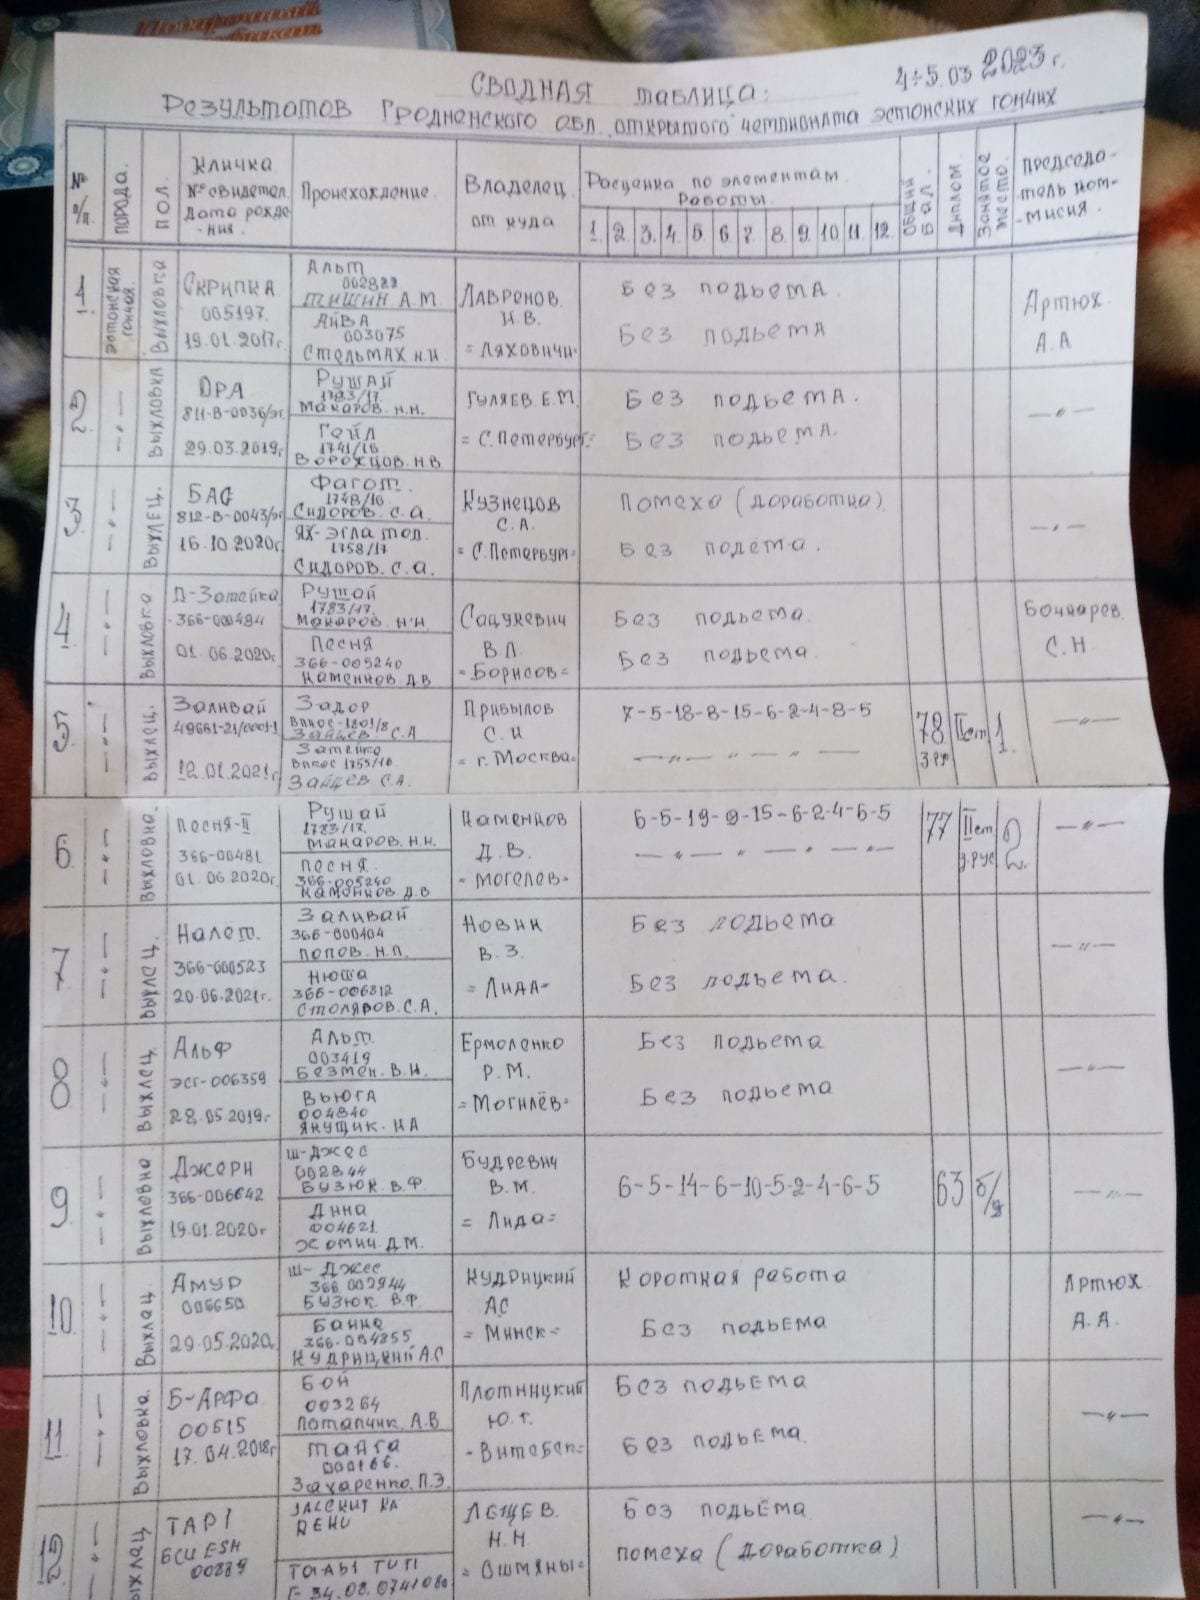 Подарочный
СВОДНАЯ ТАБЛИЦА: 4÷5.03 2023 г.
Результатов Гродненского обл. открытого чемпионата эстонских гончих
№ п/п. Порода. Пол. Кличка № свидетел. Дата рожде-ния. Происхождение. Владелец. от куда Расценка по элементам. Работы. 1. 2. 3. 4. 5. 6. 7. 8. 9. 10 11. 12. Общий бал. Диплом. Занятое место. Председа-тель ком-мисия.
1 эстонская гончая Выжловка Скрипка 005197. 19.01.2017г.
Альт
Тишин А.М
Айва
003075
Стельмах Н.И
Лавренов. Н.В. =Ляховичи=
Без подьема.
Без подьема
Артюх. А.А
2. –"– Выжловка ОРА 29.03.2019г
Рушай
1783/17.
Макаров. Н.Н.
Гейл
1741/16
Ворожцов. Н.В
Гуляев. Е.М. =С.Петербург=
Без подьема.
Без подьема.
–"–
3. –"– Выжлец. БАС 16.10.2020г.
Фагот.
1748/16
Сидоров. С.А.
1758/17
Сидоров. С.А.
Кузнецов С.А. =С.Петербург=
Помеха (доработка)
Без подёма.
–"–
4 –"– Выжловка П-Зотейка 366-000484 01.06.2020г.
Рушай
1783/17.
Макаров. Н.Н.
Песня
366-005240
Каменков. Д.В
Сацукевич В.П. =Борисов=
Без подьема.
Без подьема.
Бочкарев. С.Н.
5. –"– Выжлец. Заливай 12.01.2021г.
Задор
Зайцев С.А
Затейка
Зайцев С.А.
Прибылов С.И =г.Москва=
7-5-18-8-15-6-2-4-8-5
–"–"–"–
78 IIст з.рус 1.
–"–
6. –"– Выжловка. Песня-II 366-00481 01.06.2020г.
Рушай
1783/17.
Макаров. Н.Н.
Песня.
366-005240
Каменков Д.В
Каменков Д.В. =Могелев=
6-5-19-9-15-6-2-4-6-5
–"–"–"–
77 IIст з.рус 2.
–"–
7 –"– Выжлец. Налёт. 366-000523 20.06.2021г.
Заливай
366-000404
Попов. Н.П.
Нюша
366-006812
Столяров. С.А.
Новик В.З. =Лида=
Без подьема
Без подьема.
–"–
8 –"– Выжлец. Альф эсг-006359 28.05.2019г
Альт.
003419
Безмен. В.И.
Вьюга
004840
Янущик. НА
Ермоленко Р.М. =Могилёв=
Без подьема
Без подьема
–"–
9 –"– Выжловка Джери 366-006642 19.01.2020г
Ш-Джес
002844
Бузюк. В.Ф.
004621
Хомич. Д.М.
Будревич В.М. =Лида=
6-5-14-6-10-5-2-4-6-5
63 б/д
–"–
10 –"– Выжлац. Амур 006650 29.05.2020г.
Ш-Джес
366 002944
Бузюк. В.Ф.
366-004855
Кудрицкий А.С
Кудрицкий АС =Минск=
Короткая работа
Без подьема
Артюх А.А.
11 –"– Выжловка. Б-Арфа 00515 17.04.2018г
Бой
003264
Потапчик. А.В
Тайга
000166.
Захаренко. П.Э.
Плотницкий Ю.Г. =Витебск=
Без подьема
Без подьема.
–"–
12 –"– Выжлац. ТАРI 00889
Лещев. Н.Н =Ошмяны=
Без подьёма.
помеха (доработка)
–"–